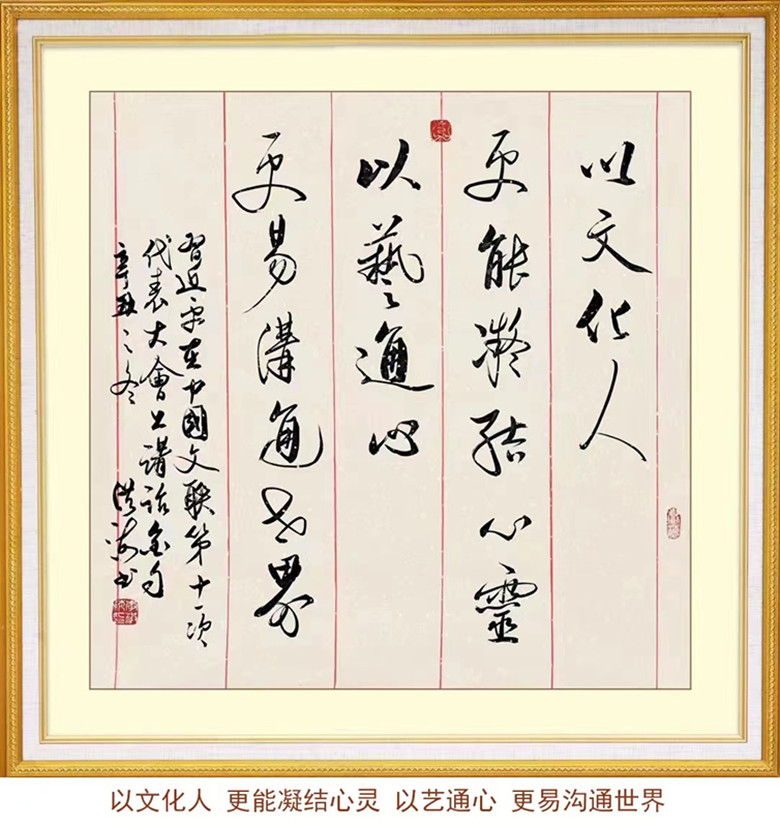 以文化人
更能凝结心靈
以藝通心
更易溝通世界
習近平在中國文联第十一次
代表大會上講話金句
辛丑之冬 洪海书
以文化人 更能凝结心灵 以艺通心 更易沟通世界